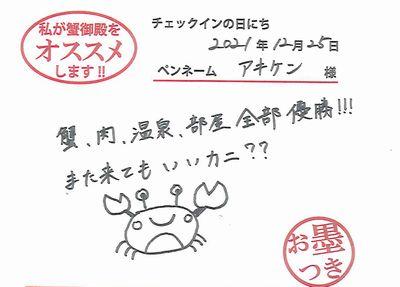 私が蟹御殿を
オススメ
します!!
チェックインの日にち
2021年12月25日
ペンネーム アキケン 様
蟹、肉、温泉、部屋全部優勝!!!
また来てもいいカニ??
お墨
つき